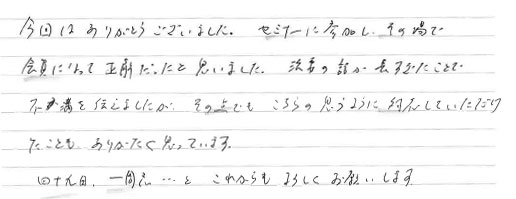 今回はありがとうございました。セミナーに参加し、その場で
会員になって正解だったと思いました。法要の話が長すぎたことで
不満を伝えましたが、その上でもこちらの思うように対応していただけ
たことも、ありがたく思っています。
四十九日、一周忌…と これからもよろしくお願いします